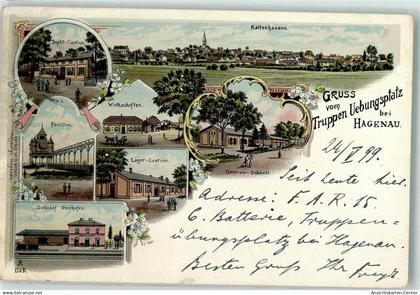 Kaltenhausen.
Depôt-Cantine.
Gruss
vom
Truppen Uebungsplatz
bei
Hagenau.
Wirthschaften.
Pavillon.
Lager-Cantine.
Generals-Gebäude.
Bahnhof Oberhofen.
24/V 99.
Seit heute hier.
Adresse: F. A. R. 15
6. Batterie, Truppen-
übungsplatz bei Hagenau.
Besten Gruß Ihr
© Ansichtskarten-Center.de